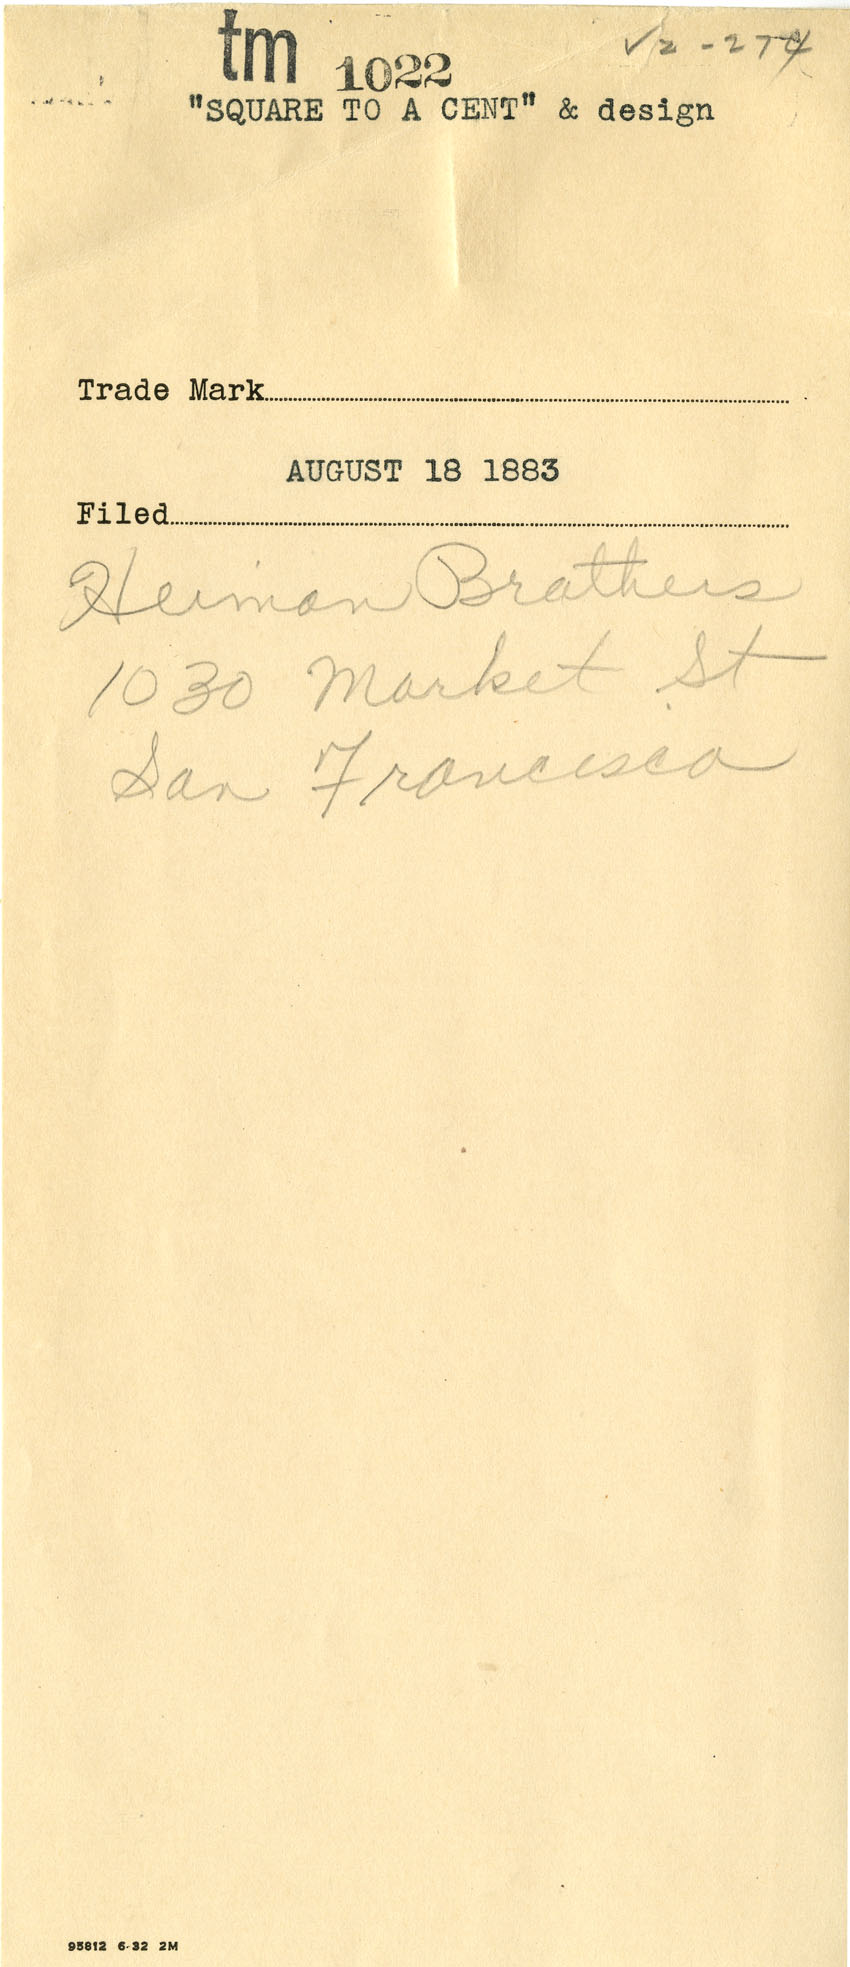 tm 1022
V2-274
"SQUARE TO A CENT" & design
Trade Mark
AUGUST 18 1883
Filed
Herman Brothers
1030 Market St
San Francisco
95812 6-32 2M